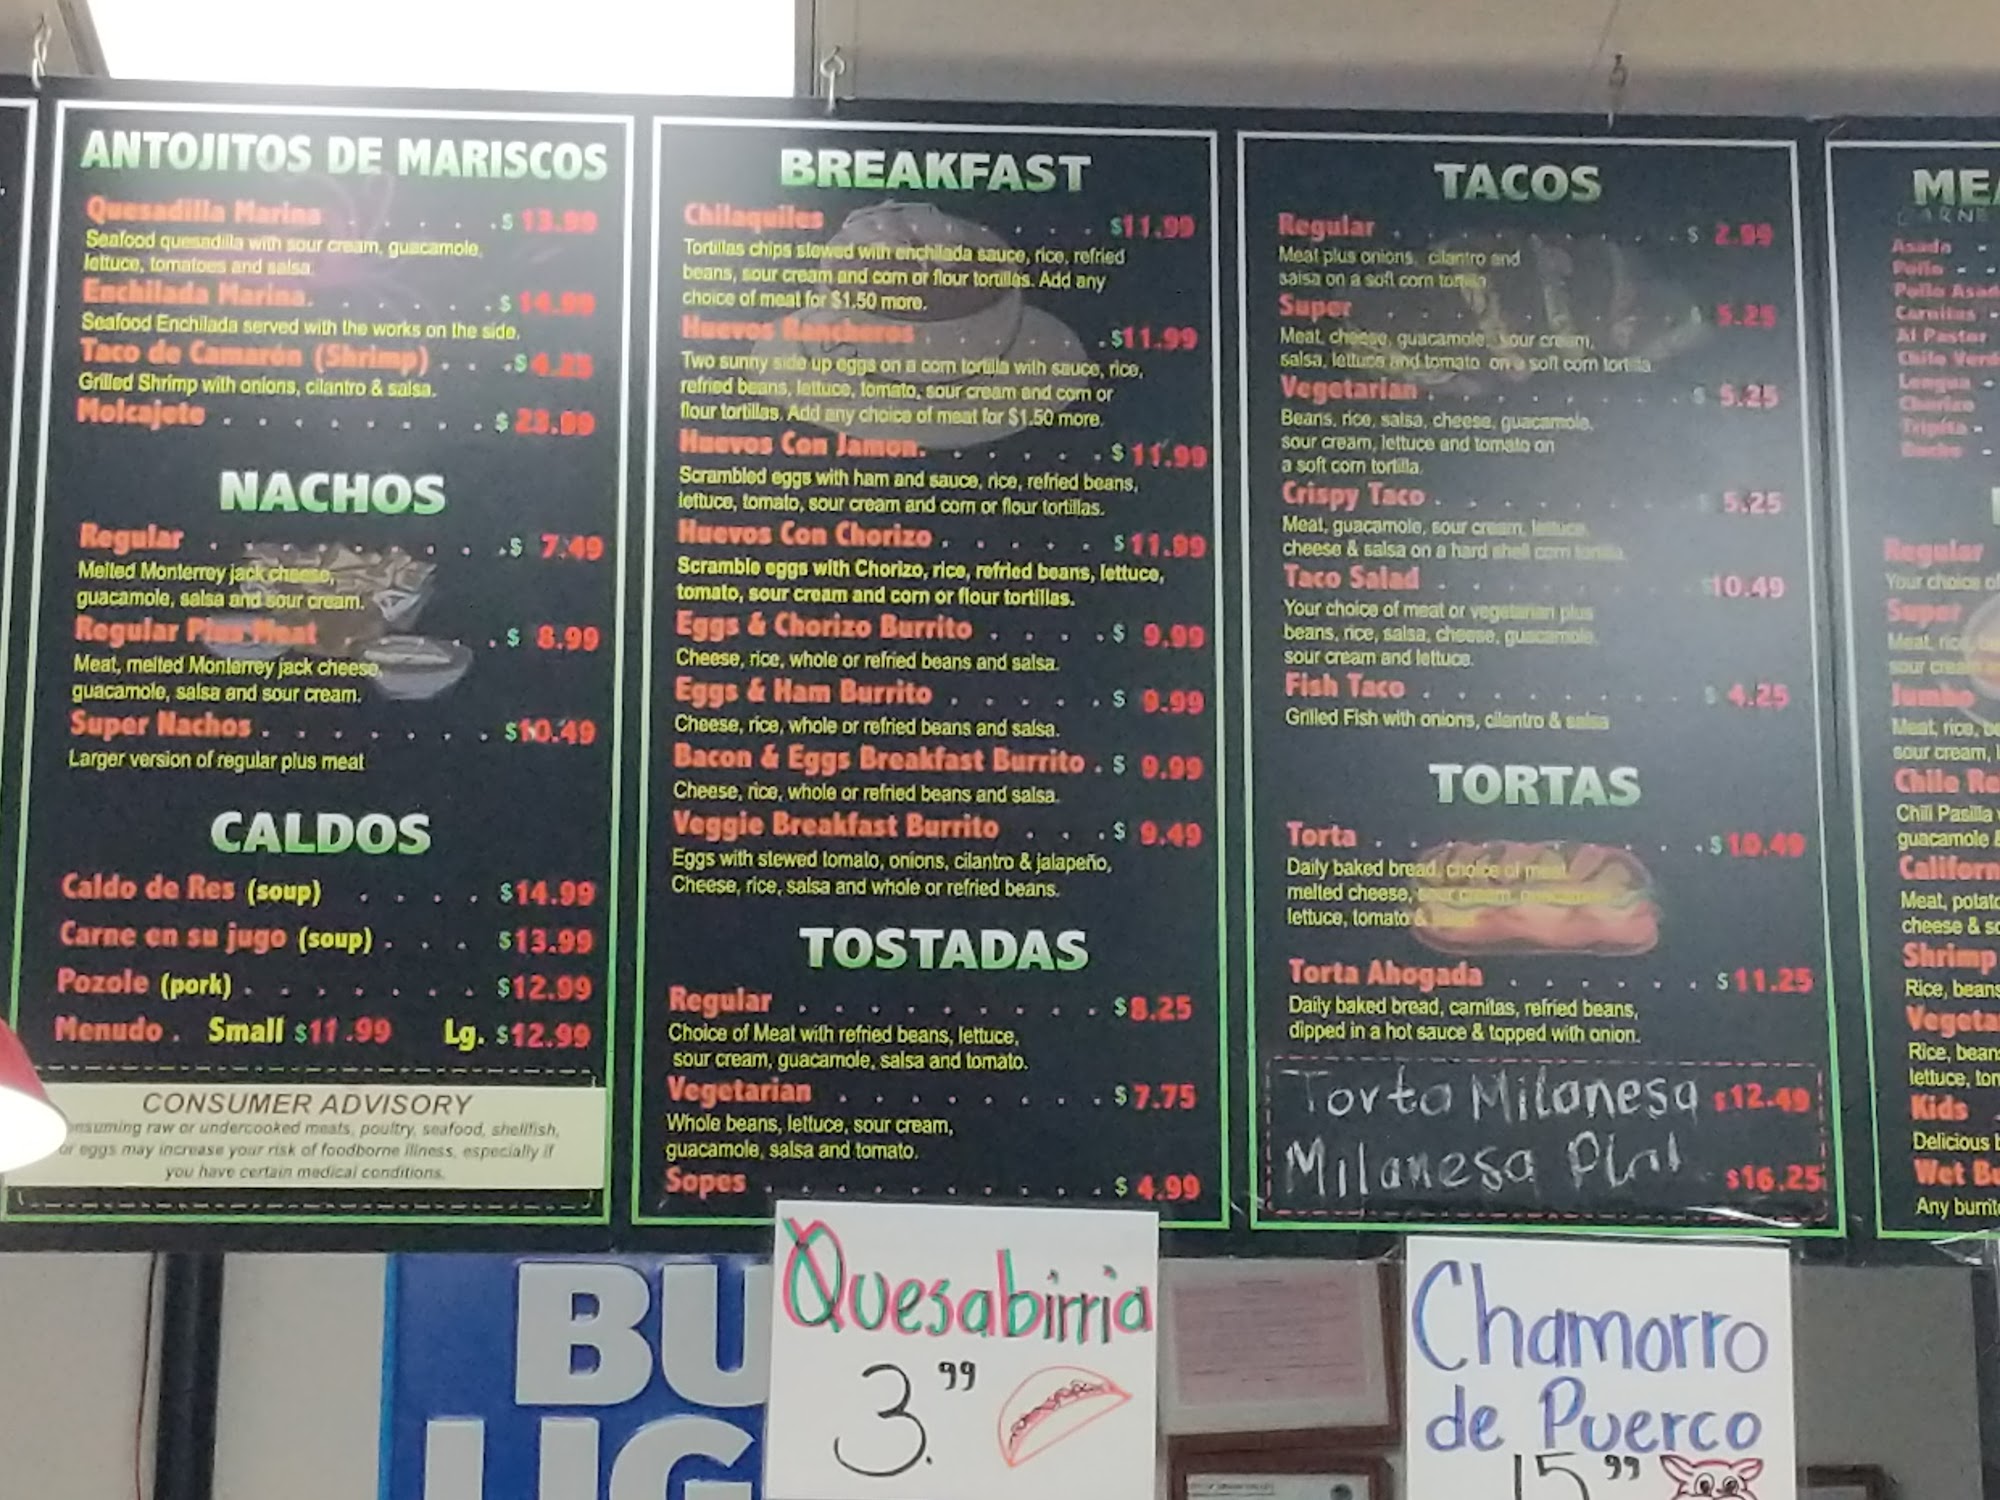 ANTOJITOS DE MARISCOS
Quesadilla Marina . . . . . . $ 13.99
Seafood quesadilla with sour cream, guacamole,
lettuce, tomatoes and salsa.
Enchilada Marina. . . . . . . $ 14.99
Seafood Enchilada served with the works on the side.
Taco de Camarón (Shrimp) . . . $ 4.25
Grilled Shrimp with onions, cilantro & salsa.
Molcajete . . . . . . . . . $ 23.99
NACHOS
Regular . . . . . . . . . $ 7.49
Melted Monterrey jack cheese,
guacamole, salsa and sour cream.
Regular Plus Meat . . . . . $ 8.99
Meat, melted Monterrey jack cheese,
guacamole, salsa and sour cream.
Super Nachos . . . . . . . . $10.49
Larger version of regular plus meat
CALDOS
Caldo de Res (soup) . . . . $14.99
Carne en su jugo (soup) . . . $13.99
Pozole (pork) . . . . . . . $12.99
Menudo . Small $11.99 Lg. $12.99
CONSUMER ADVISORY
nsuming raw or undercooked meats, poultry, seafood, shellfish,
or eggs may increase your risk of foodborne illness, especially if
you have certain medical conditions.
BREAKFAST
Chilaquiles . . . . . . . . $11.99
Tortillas chips stewed with enchilada sauce, rice, refried
beans, sour cream and corn or flour tortillas. Add any
choice of meat for $1.50 more.
Huevos Rancheros . . . . . . $11.99
Two sunny side up eggs on a corn tortilla with sauce, rice,
refried beans, lettuce, tomato, sour cream and corn or
flour tortillas. Add any choice of meat for $1.50 more.
Huevos Con Jamon. . . . . . $ 11.99
Scrambled eggs with ham and sauce, rice, refried beans,
lettuce, tomato, sour cream and corn or flour tortillas.
Huevos Con Chorizo . . . . . . $11.99
Scramble eggs with Chorizo, rice, refried beans, lettuce,
tomato, sour cream and corn or flour tortillas.
Eggs & Chorizo Burrito . . . . $ 9.99
Cheese, rice, whole or refried beans and salsa.
Eggs & Ham Burrito . . . . . $ 9.99
Cheese, rice, whole or refried beans and salsa.
Bacon & Eggs Breakfast Burrito . $ 9.99
Cheese, rice, whole or refried beans and salsa.
Veggie Breakfast Burrito . . . $ 9.49
Eggs with stewed tomato, onions, cilantro & jalapeño,
Cheese, rice, salsa and whole or refried beans.
TOSTADAS
Regular . . . . . . . . . $8.25
Choice of Meat with refried beans, lettuce,
sour cream, guacamole, salsa and tomato.
Vegetarian . . . . . . . . $ 7.75
Whole beans, lettuce, sour cream,
guacamole, salsa and tomato.
Sopes . . . . . . . . . . $ 4.99
TACOS
Regular . . . . . . . . . $ 2.99
Meat plus onions, cilantro and
salsa on a soft corn tortilla
Super . . . . . . . . . . $ 5.25
Meat, cheese, guacamole, sour cream,
salsa, lettuce and tomato on a soft corn tortilla.
Vegetarian . . . . . . . . $ 5.25
Beans, rice, salsa, cheese, guacamole,
sour cream, lettuce and tomato on
a soft corn tortilla.
Crispy Taco . . . . . . . . $ 5.25
Meat, guacamole, sour cream, lettuce,
cheese & salsa on a hard shell corn tortilla.
Taco Salad . . . . . . . . $10.49
Your choice of meat or vegetarian plus
beans, rice, salsa, cheese, guacamole,
sour cream and lettuce.
Fish Taco . . . . . . . . . $ 4.25
Grilled Fish with onions, cilantro & salsa
TORTAS
Torta . . . . . . . . . . $10.49
Daily baked bread, choice of meat,
melted cheese, sour cream, guacamole,
lettuce, tomato &
Torta Ahogada . . . . . . $ 11.25
Daily baked bread, carnitas, refried beans,
dipped in a hot sauce & topped with onion.
Torta Milanesa $12.49
Milanesa Plat $16.25
Asada -
Pollo - -
Pollo Asad
Carnitas -
Al Pastor
Chile Verd
Lengua -
Chorizo
Tripita -
Regular
Your choice of
Super
Meat, rice,
sour cream
Jumbo
Meat, rice, be
sour cream, l
Chile Re
Chili Pasilla
guacamole &
Californ
Meat, potato
cheese &
Shrimp
Rice, beans
Vegeta
Rice, bean
lettuce, tom
Kids
Delicious b
Wet Bu
Any burrito
BU
LIG
Quesabirria
3.99
Chamorro
de Puerco
15.99